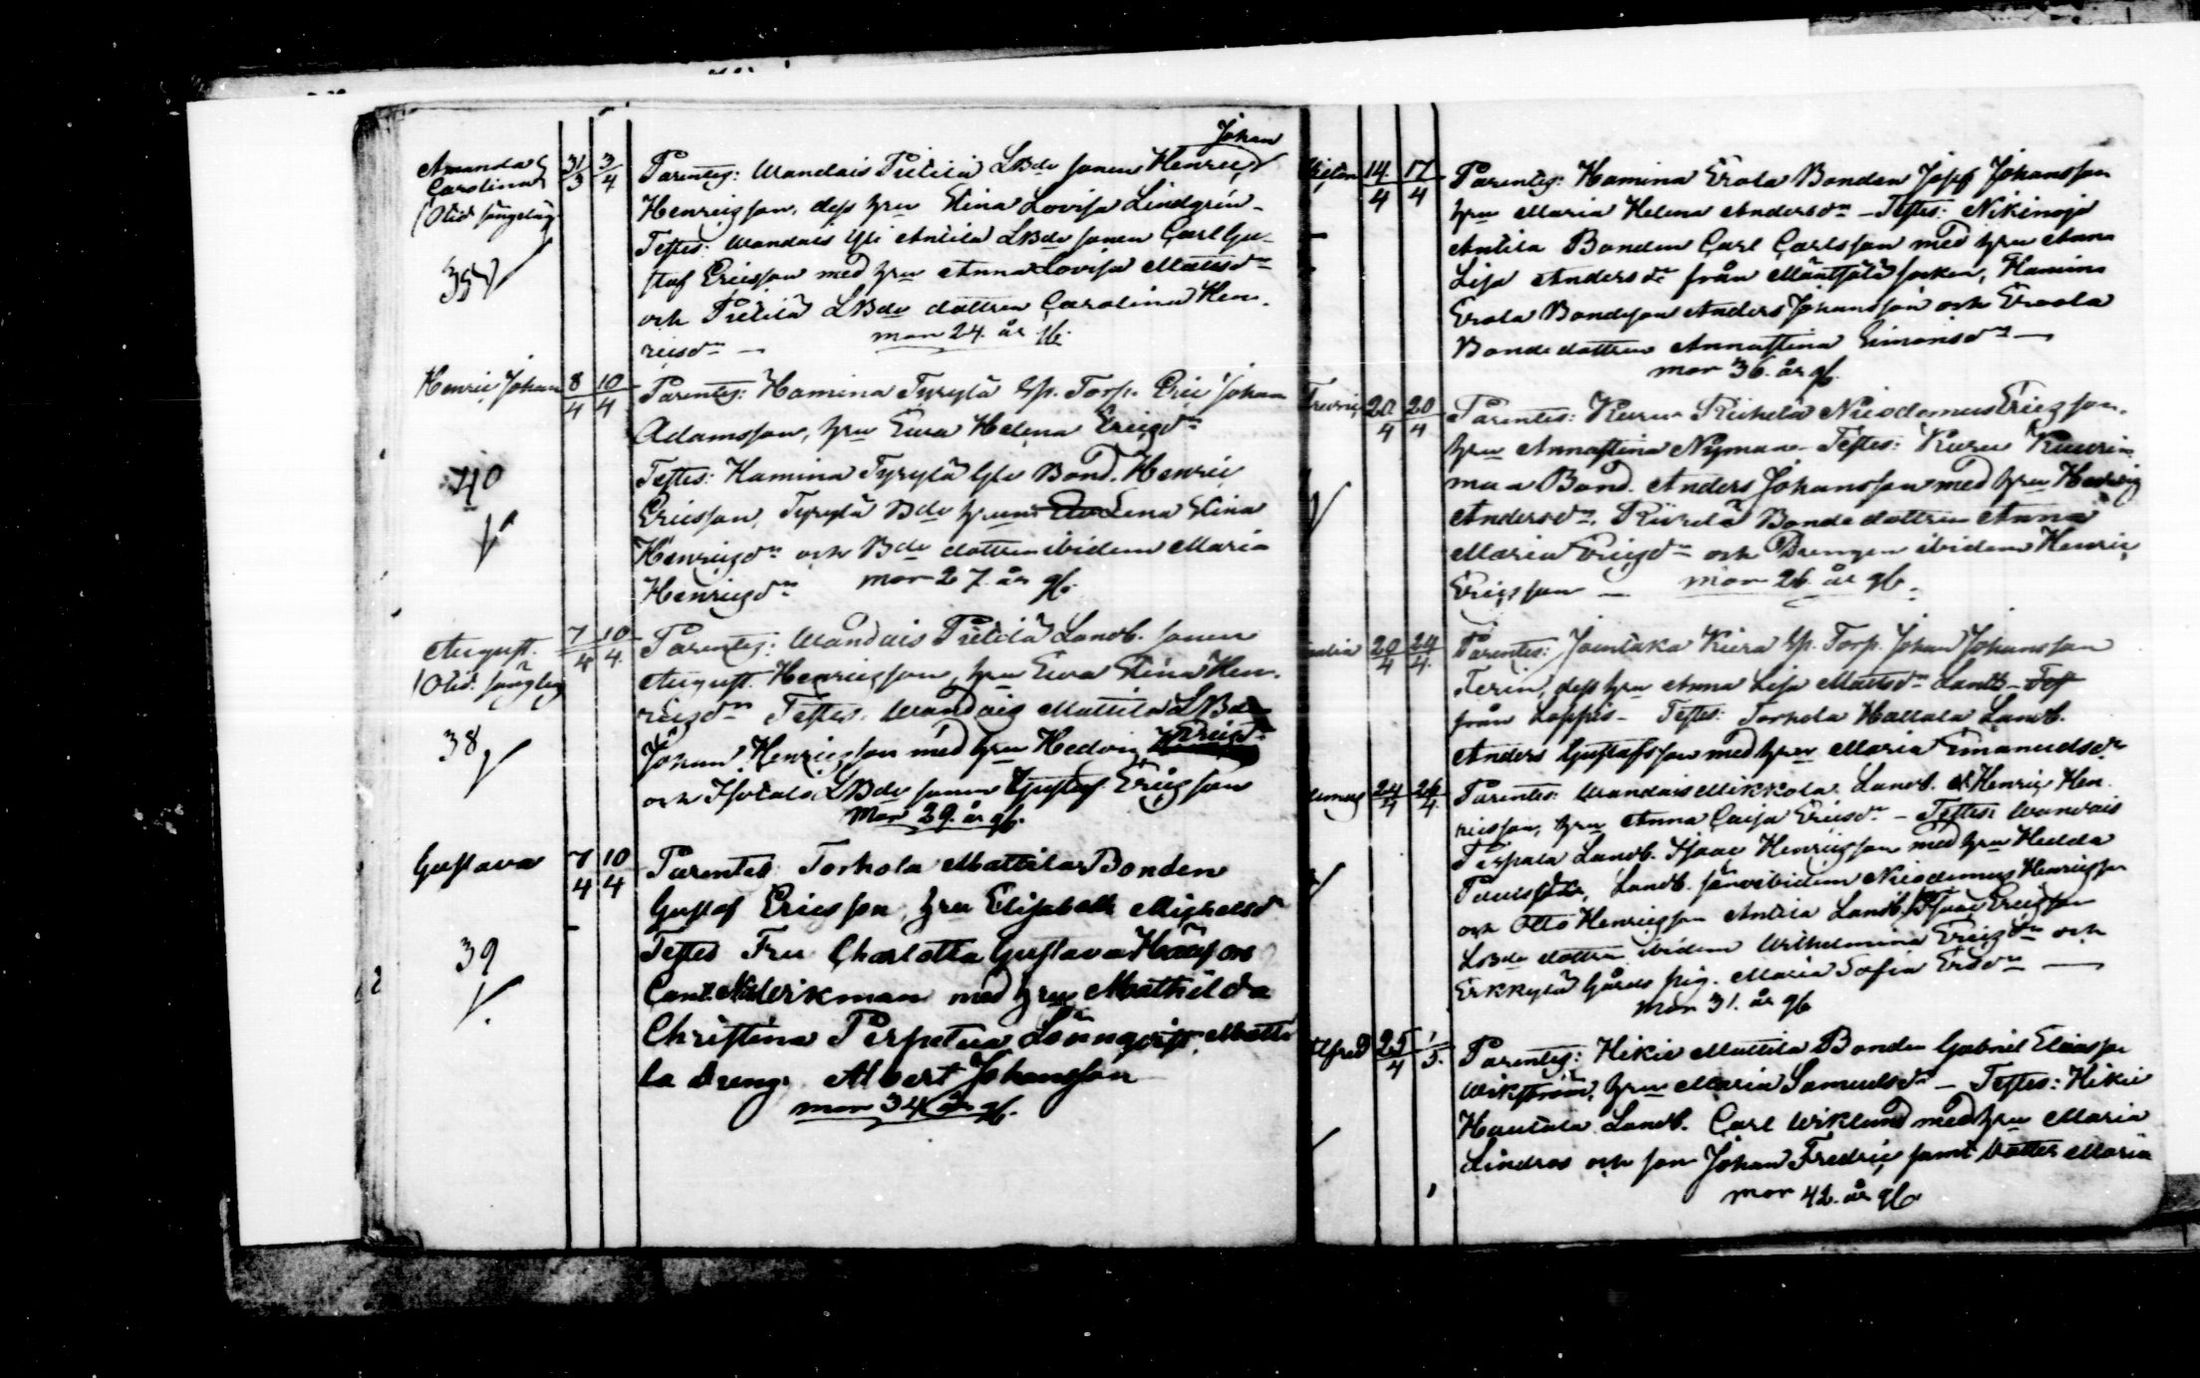 Johan
Amanda
Carolina
(Otid: sängelag
35
31/3 3/4
Parentes: Wandais Pietilä LBde sonen Henric
Henricsson, dess hru Stina Lovisa Lindgrén -
Testes: Wandais Yli Anttila LBde sonen Carl Gu-
staf Ericsson med hru Anna Lovisa Mattsdr
och Pietilä LBde dottren Carolina Hen-
ricsdr -
mor 24. år gl.
Henric Johan
40
8/4 10/4
Parentes: Hamina Tyrylä Sp. Torp. Eric Johan
Adamsson, hru Eva Helena Ericsdr
Testes: Hamina Tyrylä Bond. Henric
Ericsson, Tyrylä Bde hrun Lena Stina
Henricsdr och Bde dottren ibidem Maria
Henricsdr mor 27. år gl.
August.
(Otid: sänglag
38
7/4 10/4
Parentes: Wåndais Pietilä Landb. sonen
August Henricsson, hru Eva Stina Hen-
ricsdr Testes: Wandais Mattila LBde
Johan Henricsson med hru Hedvig Ericsdr
och Isotalo LBde sonen Gustaf Ericsson
Mor 29. år gl.
Gustava
39
7/4 10/4
Parentes Torhola Mattila Bonden
Gustaf Ericsson, hru Elisabeth Michelsdr
Testes Fru Charlotta Gustava
Wikman med hru Mathilda
Christina Perpetua Lönnqvist, Matti
la dreng. Albert Johansson
mor 34 år gl.
Victor
14/4 17/4
Parentes: Hamina Erola Bonden Josef Johansson
hru Maria Helena Andersdr - Testes: Nikinoja
Anttila Bonden Carl Carlsson med hru Anna
Lisa Andersdr från Mäntsälä socken, Hamina
Erola Bondeson Anders Johansson och Eroola
Bondedottren Annastina Simonsdr -
mor 36. år gl.
Fredric
20/4 20/4
Parentes: Kuru Nicodemus Ericsson,
hru Annastina Nyman - Testes: Kuru
maa Bond. Anders Johansson med hru Hedvig
Andersdr, Bondedottren Anna
Maria Ericsdr och Drengen ibidem Henric
Ericsson - mor 26. år gl.
20/4 24/4
Parentes: Joentaka Kiera Sp. Torp. Johan Johansson
Terin, dess hru Anna Lisa Mattsdr Landb -
från Loppis - Testes: Torhola Hattala Landb.
Anders Gustafsson med hru Maria Emanuelsdr
24/4 26/4
Parentes: Wandais Mikkola Landb. Henric Hen
ricsson, hru Anna Caisa Ericsdr - Testes Wandais
Landb. Isaac Henricsson med hru Hedda
Landb. ibidem Nicodemus Henricsson
och Otto Henricsson Anttila Landb. Isaac Ericsson
LBde dottren ibidem Wilhelmina Ericsdr och
Erkkylä Gårds pig. Maria Sofia -
Mor 31. år gl
Alfred
25/4 1/5.
Parentes: Hikiä Mattila Bonden Gabriel Eliasson
Wikström, hru Maria Samuelsdr - Testes: Hikiä
Hautala Landb. Carl Wiklund med hru Maria
Lindros och son Johan Fredric samt dotter Maria
mor 42. år gl